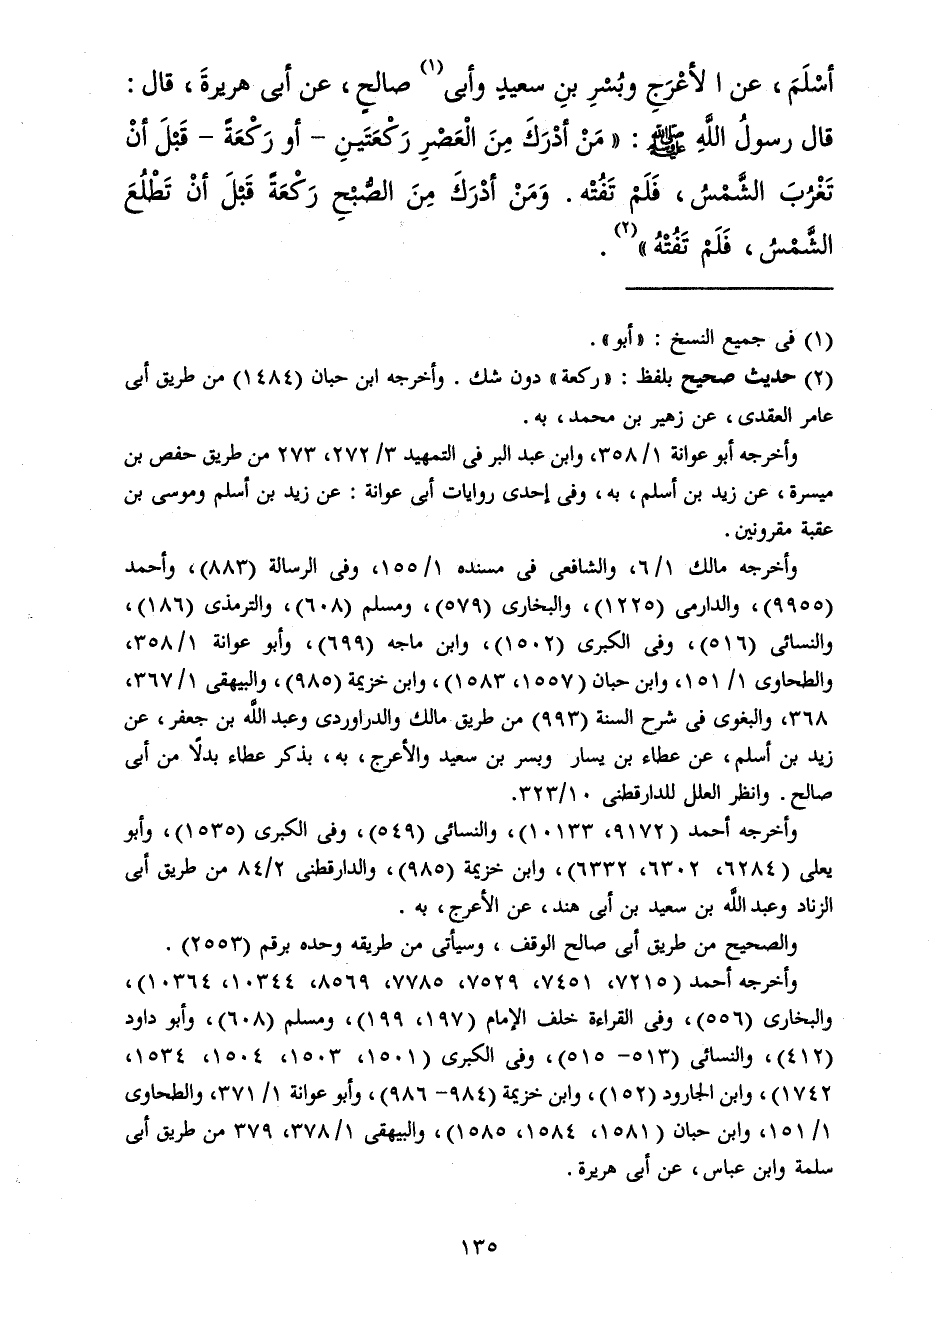 أَسْلَمَ ، عن الأعْرَجِ وبُسْرِ بنِ سعيدٍ وأبى(١) صالحٍ ، عن أبى هريرةَ ، قال :
قال رسولُ اللَّهِ ﷺ : « مَنْ أدْرَكَ مِنَ الْعَصْرِ رَكْعَتَينِ – أو رَكْعَةً – قَبْلَ أنْ
تَغْرُبَ الشَّمْسُ ، فَلَمْ تَفُتْه . وَمَنْ أدْرَكَ مِنَ الصُّبْحِ رَكْعَةً قَبْلَ أنْ تَطْلُعَ
الشَّمْسُ ، فَلَمْ تَفُتْهُ »(٢) .
(١) فى جميع النسخ : «أبو» .
(٢) حديث صحيح بلفظ : «ركعة» دون شك . وأخرجه ابن حبان (١٤٨٤) من طريق أبى
عامر العقدى ، عن زهير بن محمد ، به .
وأخرجه أبو عوانة ١/ ٣٥٨، وابن عبد البر فى التمهيد ٣/ ٢٧٢، ٢٧٣ من طريق حفص بن
ميسرة ، عن زيد بن أسلم ، به ، وفى إحدى روايات أبى عوانة : عن زيد بن أسلم وموسى بن
عقبة مقرونين .
وأخرجه مالك ١/ ٦، والشافعى فى مسنده ١/ ١٥٥، وفى الرسالة (٨٨٣)، وأحمد
(٩٩٥٥)، والدارمى (١٢٢٥)، والبخارى (٥٧٩)، ومسلم (٦٠٨)، والترمذى (١٨٦)،
والنسائى (٥١٦)، وفى الكبرى (١٥٠٢)، وابن ماجه (٦٩٩)، وأبو عوانة ١/ ٣٥٨،
والطحاوى ١/ ١٥١، وابن حبان (١٥٥٧، ١٥٨٣)، وابن خزيمة (٩٨٥)، والبيهقى ١/ ٣٦٧،
٣٦٨، والبغوى فى شرح السنة (٩٩٣) من طريق مالك والدراوردى وعبد اللَّه بن جعفر ، عن
زيد بن أسلم ، عن عطاء بن يسار وبسر بن سعيد والأعرج ، به ، بذكر عطاء بدلًا من أبى
صالح . وانظر العلل للدارقطنى ١٠/ ٣٢٣.
وأخرجه أحمد (٩١٧٢، ١٠١٣٣)، والنسائى (٥٤٩)، وفى الكبرى (١٥٣٥)، وأبو
يعلى (٦٢٨٤، ٦٣٠٢، ٦٣٣٢)، وابن خزيمة (٩٨٥)، والدارقطنى ٢/ ٨٤ من طريق أبى
الزناد وعبد اللَّه بن سعيد بن أبى هند ، عن الأعرج ، به .
والصحيح من طريق أبى صالح الوقف ، وسيأتى من طريقه وحده برقم (٢٥٥٣) .
وأخرجه أحمد (٧٢١٥، ٧٤٥١، ٧٥٢٩، ٧٧٨٥، ٨٥٦٩، ١٠٣٤٤، ١٠٣٦٤)،
والبخارى (٥٥٦)، وفى القراءة خلف الإمام (١٩٧، ١٩٩)، ومسلم (٦٠٨)، وأبو داود
(٤١٢)، والنسائى (٥١٣– ٥١٥)، وفى الكبرى (١٥٠١، ١٥٠٣، ١٥٠٤، ١٥٣٤،
١٧٤٢)، وابن الجارود (١٥٢)، وابن خزيمة (٩٨٤– ٩٨٦)، وأبو عوانة ١/ ٣٧١، والطحاوى
١/ ١٥١، وابن حبان (١٥٨١، ١٥٨٤، ١٥٨٥)، والبيهقى ١/ ٣٧٨، ٣٧٩ من طريق أبى
سلمة وابن عباس ، عن أبى هريرة .
١٣٥